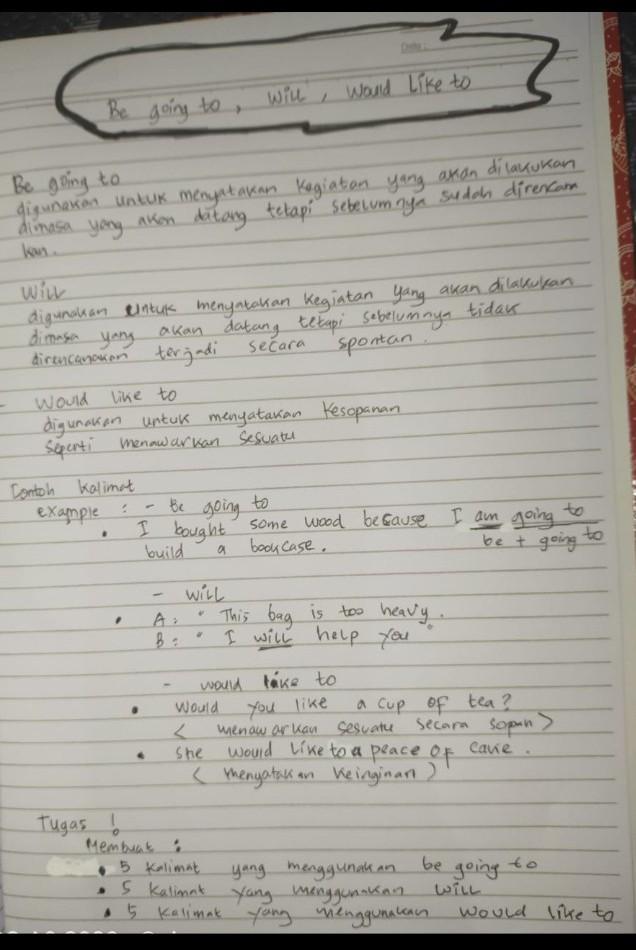 Date:
Be going to, Will, Would Like to
Be going to
digunakan untuk menyatakan kegiatan yang akan dilakukan
dimasa yang akan datang tetapi sebelumnya sudah direncana
kan.
Will
digunakan untuk menyatakan kegiatan yang akan dilakukan
dimasa yang akan datang tetapi sebelumnya tidak
direncanakan terjadi secara spontan.
- Would like to
digunakan untuk menyatakan kesopanan
seperti menawarkan sesuatu
Contoh kalimat
example : - Be going to
• I bought some wood because I am going to
build a bookcase. be + going to
- Will
• A : " This bag is too heavy.
B : " I will help you "
- would like to
• Would you like a cup of tea?
< menawarkan sesuatu secara sopan >
• She would like to a peace of cake.
< menyatakan keinginan )
Tugas !
Membuat :
• 5 kalimat yang menggunakan be going to
• 5 kalimat yang menggunakan will
• 5 kalimat yang menggunakan would like to